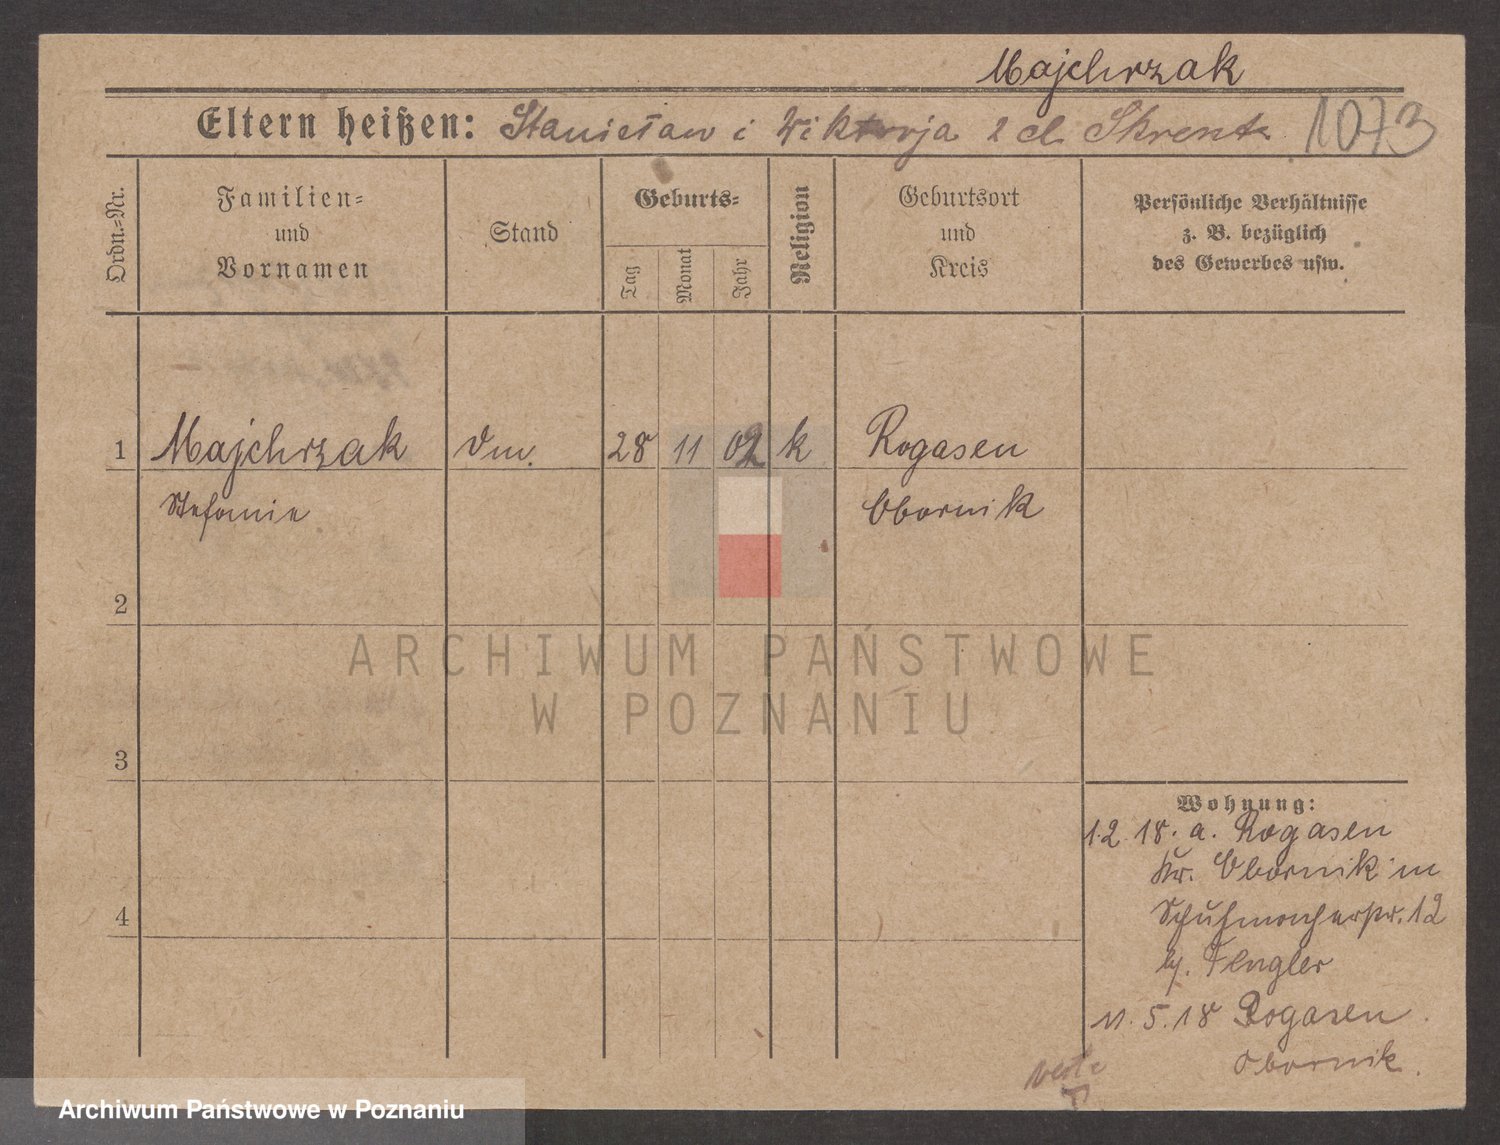 Majchrzak
Eltern heißen: Stanisław i Wiktorja z d. Skrent 1073
Ordn.-Nr.
Familien-
und
Vornamen
Stand
Geburts-
Tag
Monat
Jahr
Religion
Geburtsort
und
Kreis
Persönliche Verhältnisse
z. B. bezüglich
des Gewerbes usw.
1 Majchrzak Dm. 28 11 02 k Rogasen
Stefanie Obornik
2
ARCHIWUM PAŃSTWOWE
W POZNANIU
3
Wohnung:
1.2.18. a. Rogasen
Kr. Obornik in
Schuhmacherstr. 12
b/. Flngler
4
11.5.18 Rogasen.
Obornik.
verte
Archiwum Państwowe w Poznaniu